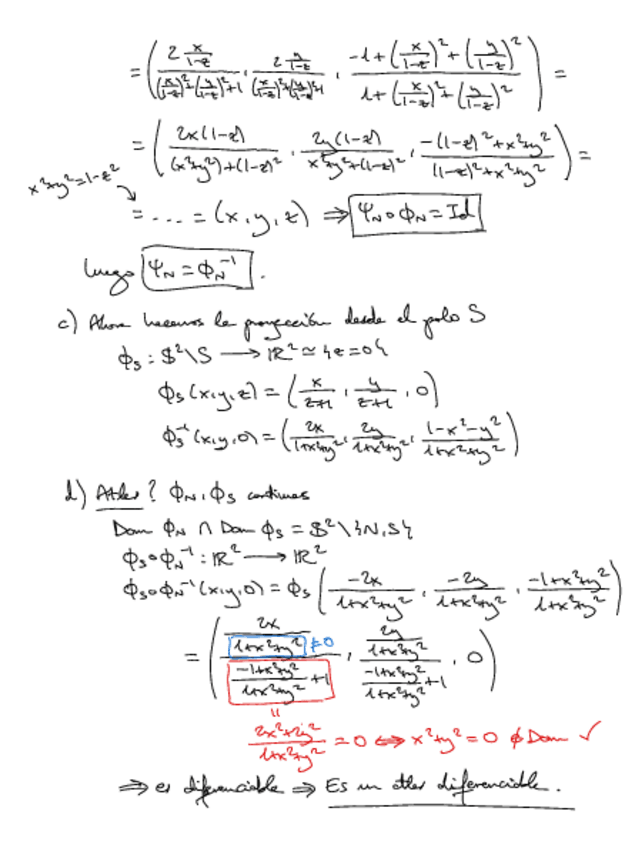 = ( \frac{2\frac{x}{1-z}}{(\frac{x}{1-z})^2+(\frac{y}{1-z})^2+1} , \frac{2\frac{y}{1-z}}{(\frac{x}{1-z})^2+(\frac{y}{1-z})^2+1} , \frac{-1+(\frac{x}{1-z})^2+(\frac{y}{1-z})^2}{1+(\frac{x}{1-z})^2+(\frac{y}{1-z})^2} ) =
= ( \frac{2x(1-z)}{(x^2+y^2)+(1-z)^2} , \frac{2y(1-z)}{x^2+y^2+(1-z)^2} , \frac{-(1-z)^2+x^2+y^2}{(1-z)^2+x^2+y^2} ) =
x^2+y^2=1-z^2
= .... = (x,y,z) ⇒ Ψ_N∘ϕ_N = Id
luego Ψ_N = ϕ_N^{-1} .
c) Ahora hacemos la proyección desde el polo S
ϕ_S : $^2\S ⟶ ℝ^2 ≃ {z=0}
ϕ_S(x,y,z) = ( \frac{x}{z+1} , \frac{y}{z+1} , 0 )
ϕ_S^{-1}(x,y,0) = ( \frac{2x}{1+x^2+y^2} , \frac{2y}{1+x^2+y^2} , \frac{1-x^2-y^2}{1+x^2+y^2} )
d) Atlas? ϕ_N, ϕ_S continuas
Dom ϕ_N ∩ Dom ϕ_S = $^2\{N,S}
ϕ_S∘ϕ_N^{-1} : ℝ^2 ⟶ ℝ^2
ϕ_S∘ϕ_N^{-1}(x,y,0) = ϕ_S ( \frac{-2x}{1+x^2+y^2} , \frac{-2y}{1+x^2+y^2} , \frac{-1+x^2+y^2}{1+x^2+y^2} )
= ( \frac{\frac{2x}{1+x^2+y^2}}{\frac{-1+x^2+y^2}{1+x^2+y^2}+1} , \frac{\frac{2y}{1+x^2+y^2}}{\frac{-1+x^2+y^2}{1+x^2+y^2}+1} , 0 )
≠0
=
\frac{2x^2+2y^2}{1+x^2+y^2} = 0 ⇔ x^2+y^2 = 0 ∉ Dom ✓
⇒ es diferenciable ⇒ Es un atlas diferenciable.